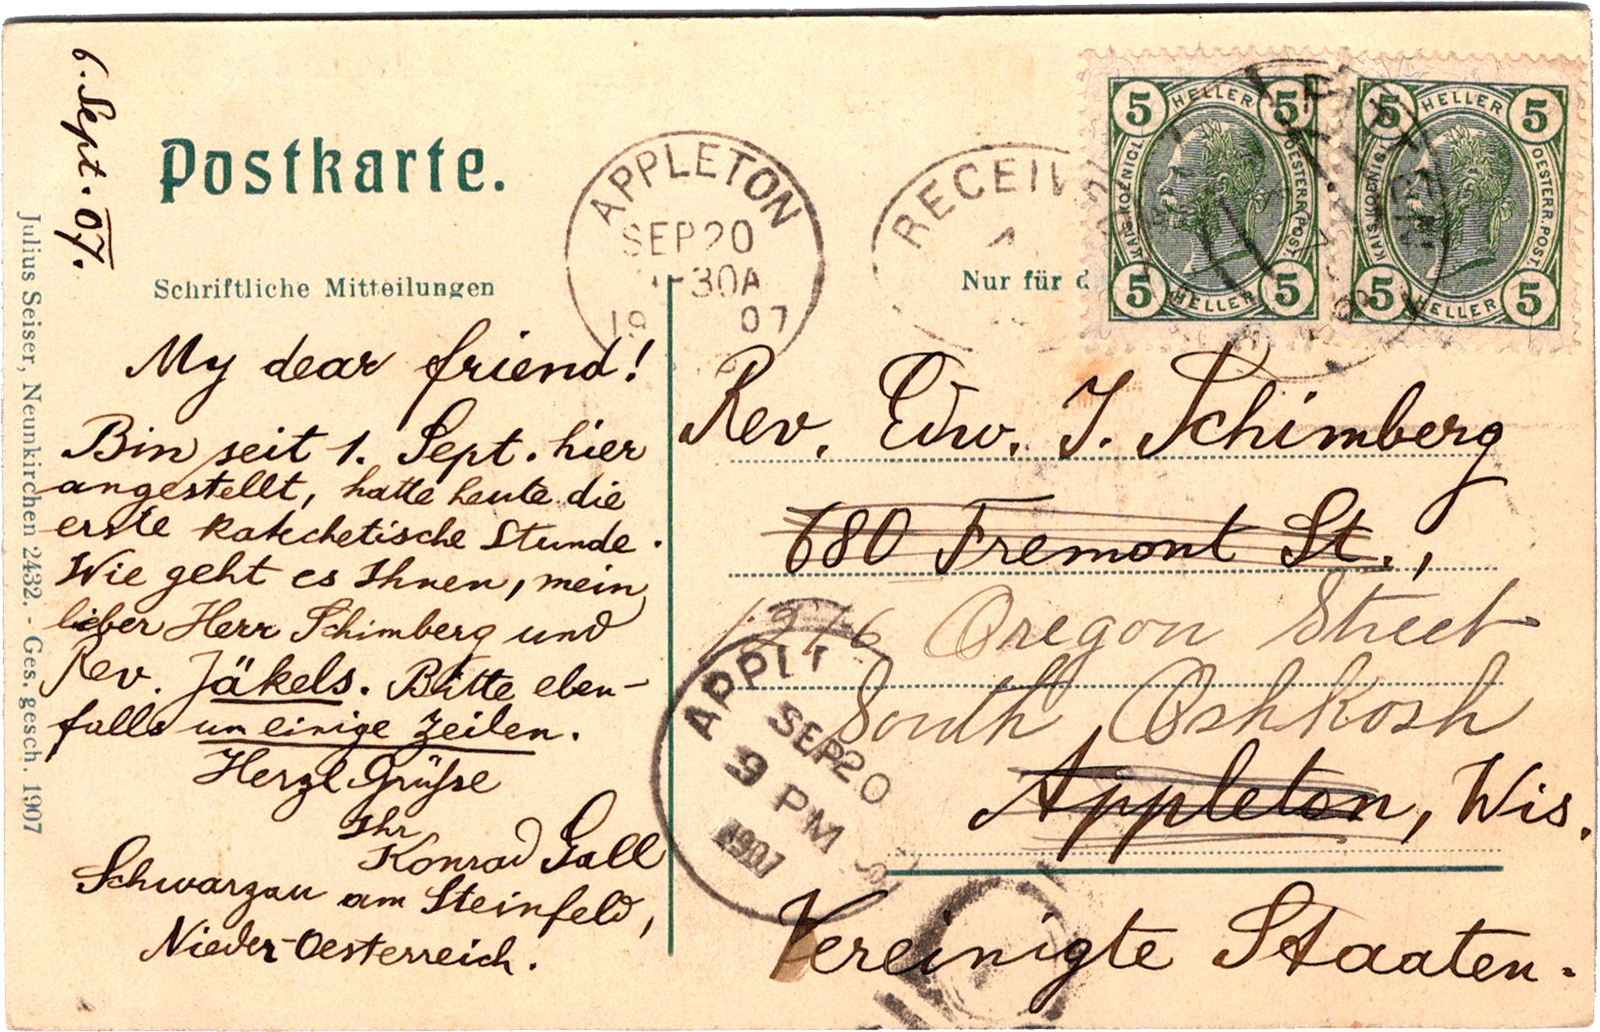 6. Sept. 07.
Postkarte.
Schriftliche Mitteilungen
Julius Seiser, Neunkirchen 2432. - Ges. gesch. 1907
My dear friend!
Bin seit 1. Sept. hier
angestellt, hatte heute die
erste katechetische Stunde.
Wie geht es Ihnen, mein
lieber Herr Schimberg und
Rev. Jäkels. Bitte eben-
falls um einige Zeilen.
Herzl Grüße
Ihr
Konrad Gall
Schwarzau am Steinfeld,
Nieder-Oesterreich.
APPLETON
SEP 20
-30A
19 07
RECEIV
Nur für d
5 HELLER 5
KAIS. KOENIGL. OESTERR. POST.
5 HELLER 5
5 HELLER 5
KAIS. KOENIGL. OESTERR. POST.
5 HELLER 5
Rev. Edw. J. Schimberg
680 Fremont St.,
1216 Oregon Street
South Oshkosh
Appleton, Wis.
Vereinigte Staaten.
APPL
SEP 20
9 PM
1907